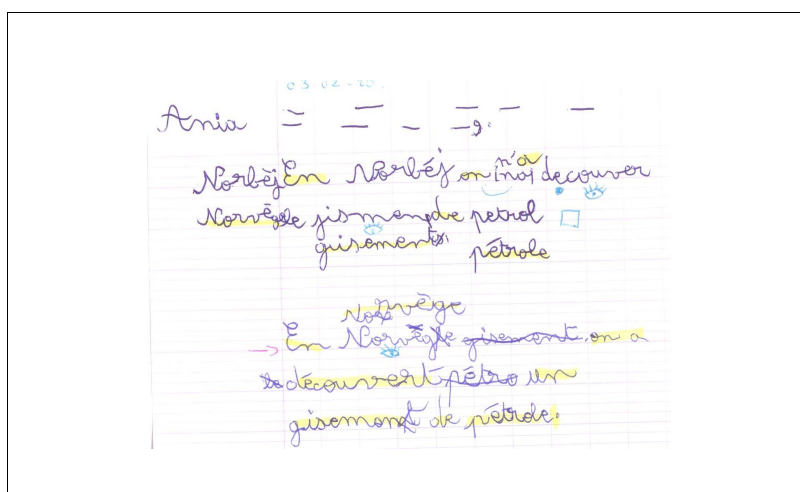 03-02-20.
Ania
Norbèj En Norbéj on n'a decouver
Norvège jismen de petrol
gisements pétrole
Norvège
En Norvège gisement on a
découvert pétro un
gisement de pétrole.